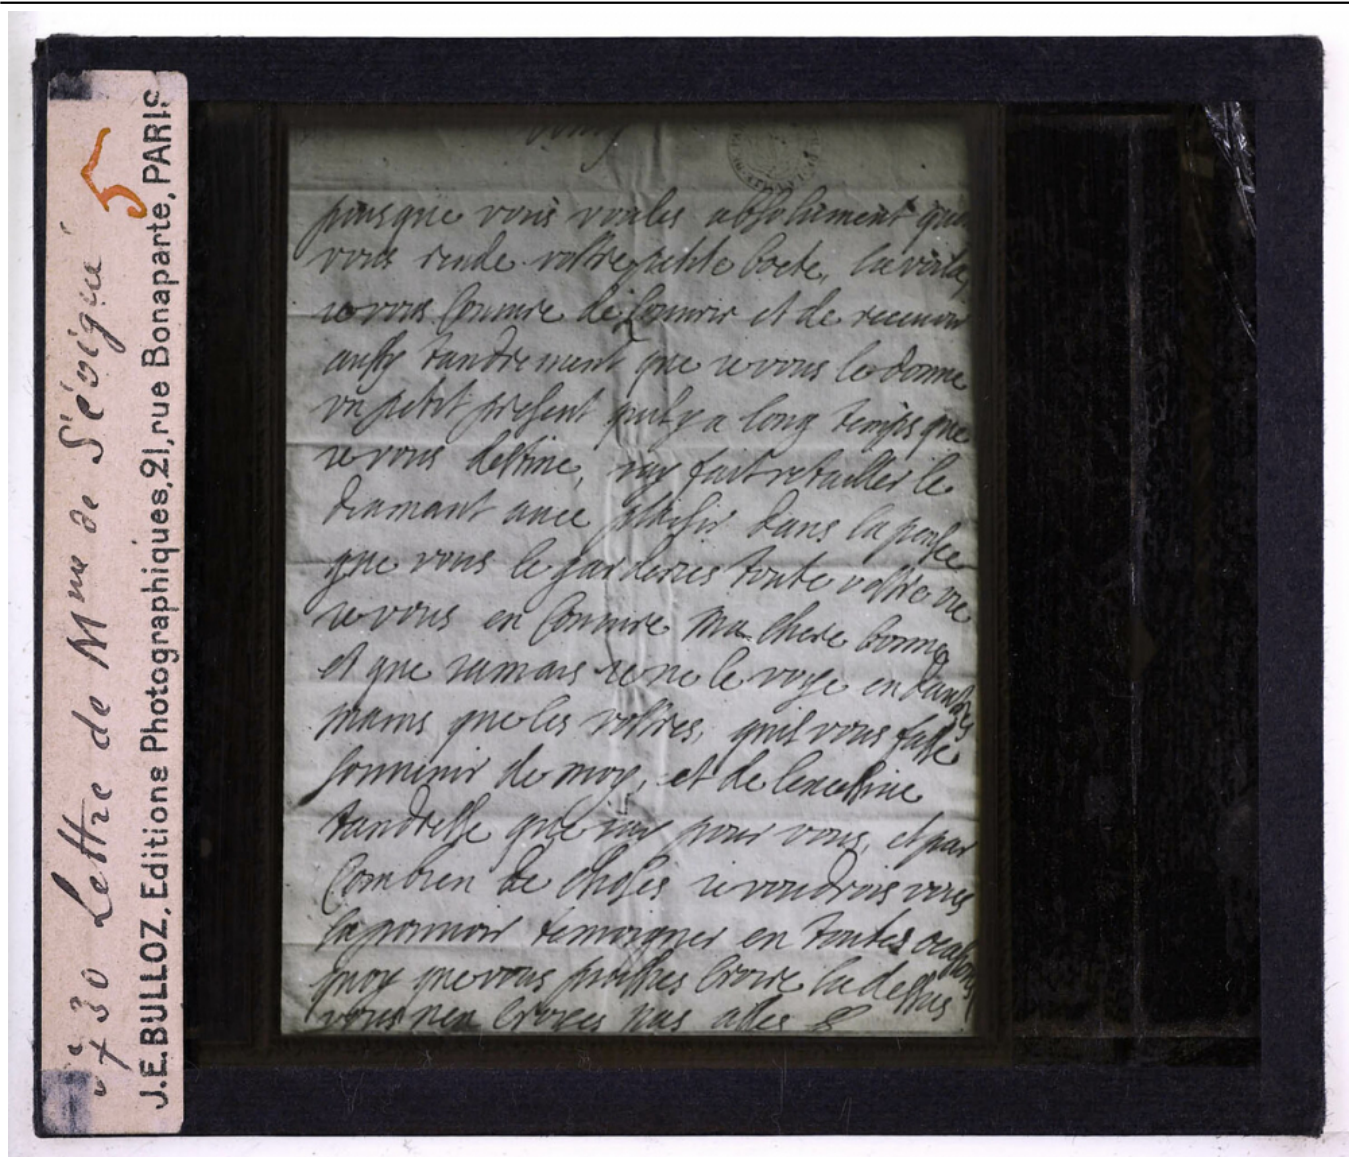 30 Lettre de Mme de Sévigné
5
J.E.BULLOZ, Editions Photographiques, 21, rue Bonaparte, PARIS
puisque vous voules absolument que
vous rende vostre petite boete, la voila
ie vous coniure de et de receuoir
aussy tandrement que ie vous le donne
vn petit present quil y a long temps que
ie vous destine, iay fait retailler le
diamant auec plaisir dans la pensee
que vous le garderies toute vostre vie
ie vous en coniure ma chere bonne
et que iamais ie ne le voye en dautres
mains que les vostres, quil vous fasse
souuenir de moy, et de lexcessiue
tandresse que iay pour vous, et par
combien de choses ie voudrois vous
la pouuoir temoigner en toutes ocasions
quoy que vous puissies croire la dessus
vous nen croyes pas asses